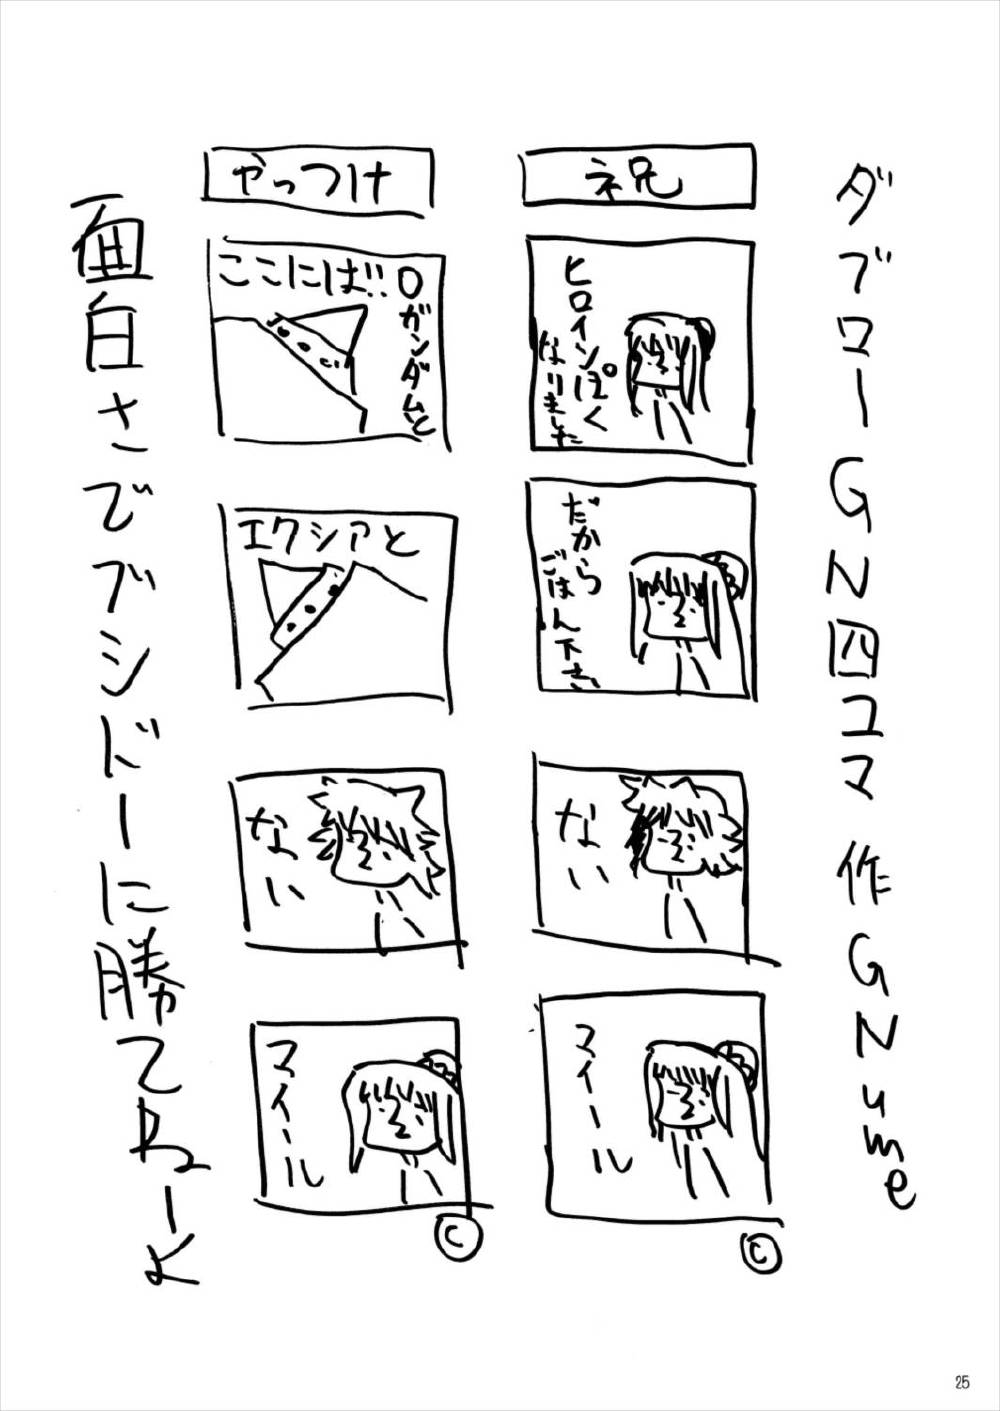 ダブローGN四コマ 作GNume
ネ兄
ヒロインぽく
なりました
だから
ごはん下さい
ない
マイール
C
やっつけ
Oガンダムと
ここには!!
エクシアと
ない
マイール
C
面白さでブシドーに勝てねーよ
25